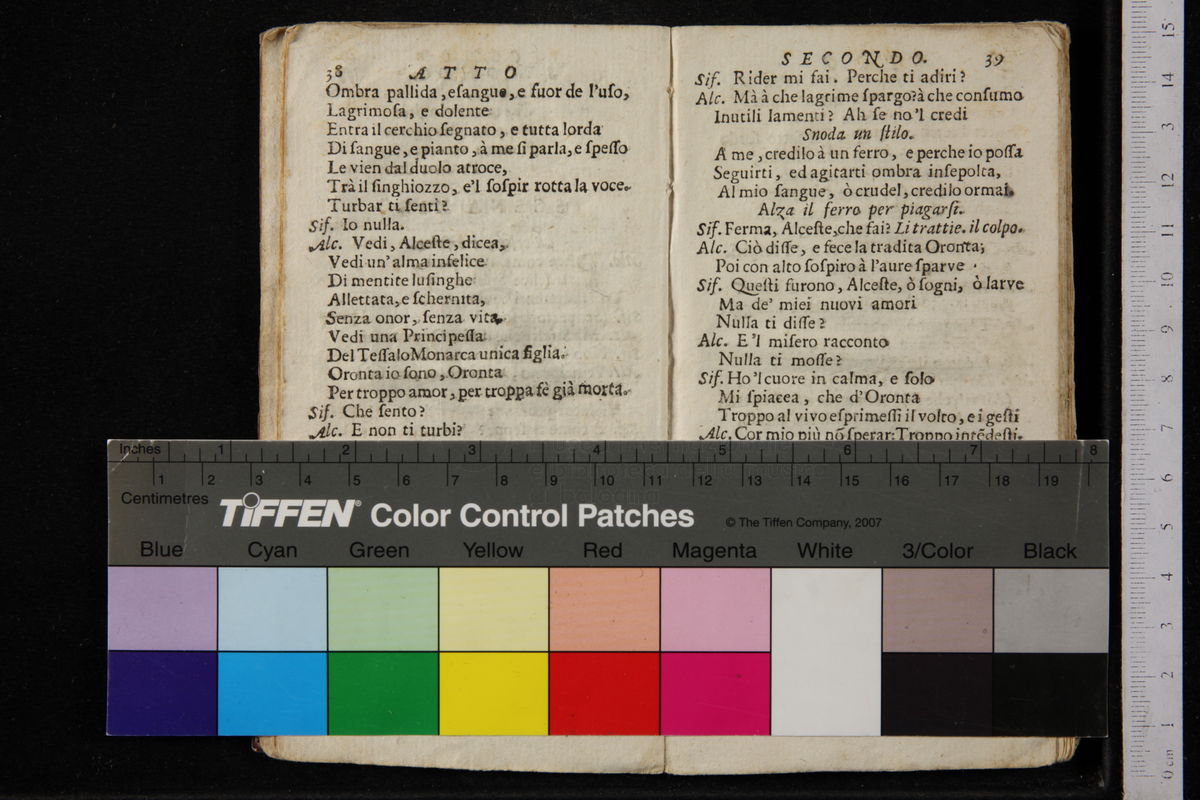 38 ATTO
Ombra pallida, eſangue, e fuor de l'uſo,
Lagrimoſa, e dolente
Entra il cerchio ſegnato, e tutta lorda
Di ſangue, e pianto, à me ſi parla, e ſpeſſo
Le vien dal duolo atroce,
Trà il ſinghiozzo, e'l ſoſpir rotta la voce.
Turbar ti ſenti?
Sif. Io nulla.
Alc. Vedi, Alceſte, dicea,
Vedi un' alma infelice
Di mentite luſinghe
Allettata, e ſchernita,
Senza onor, ſenza vita,
Vedi una Principeſſa
Del Teſſalo Monarca unica figlia.
Oronta io ſono, Oronta
Per troppo amor, per troppa fè già morta.
Sif. Che ſento?
Alc. E non ti turbi?
SECONDO. 39
Sif. Rider mi fai. Perche ti adiri?
Alc. Mà à che lagrime ſpargo? à che conſumo
Inutili lamenti? Ah ſe no 'l credi
Snoda un ſtilo.
A me, credilo à un ferro, e perche io poſſa
Seguirti, ed agitarti ombra inſepolta,
Al mio ſangue, ò crudel, credilo ormai.
Alza il ferro per piagarſi.
Sif. Ferma, Alceſte, che fai? Li trattie. il colpo.
Alc. Ciò diſſe, e fece la tradita Oronta;
Poi con alto ſoſpiro à l'aure ſparve.
Sif. Queſti furono, Alceſte, ò ſogni, ò larve
Ma de' miei nuovi amori
Nulla ti diſſe?
Alc. E 'l miſero racconto
Nulla ti moſſe?
Sif. Ho 'l cuore in calma, e ſolo
Mi ſpiacea, che d'Oronta
Troppo al vivo eſprimeſſi il volto, e i geſti
Alc. Cor mio più nō ſperar: Troppo intēdeſti.
Inches 1 2 3 4 5 6 7 8
1 2 3 4 5 6 7 8 9 10 11 12 13 14 15 16 17 18 19
Centimetres
TIFFEN® Color Control Patches © The Tiffen Company, 2007
Blue Cyan Green Yellow Red Magenta White 3/Color Black
15
14
3
12
11
10
9
8
7
6
5
4
3
2
1
0 cm